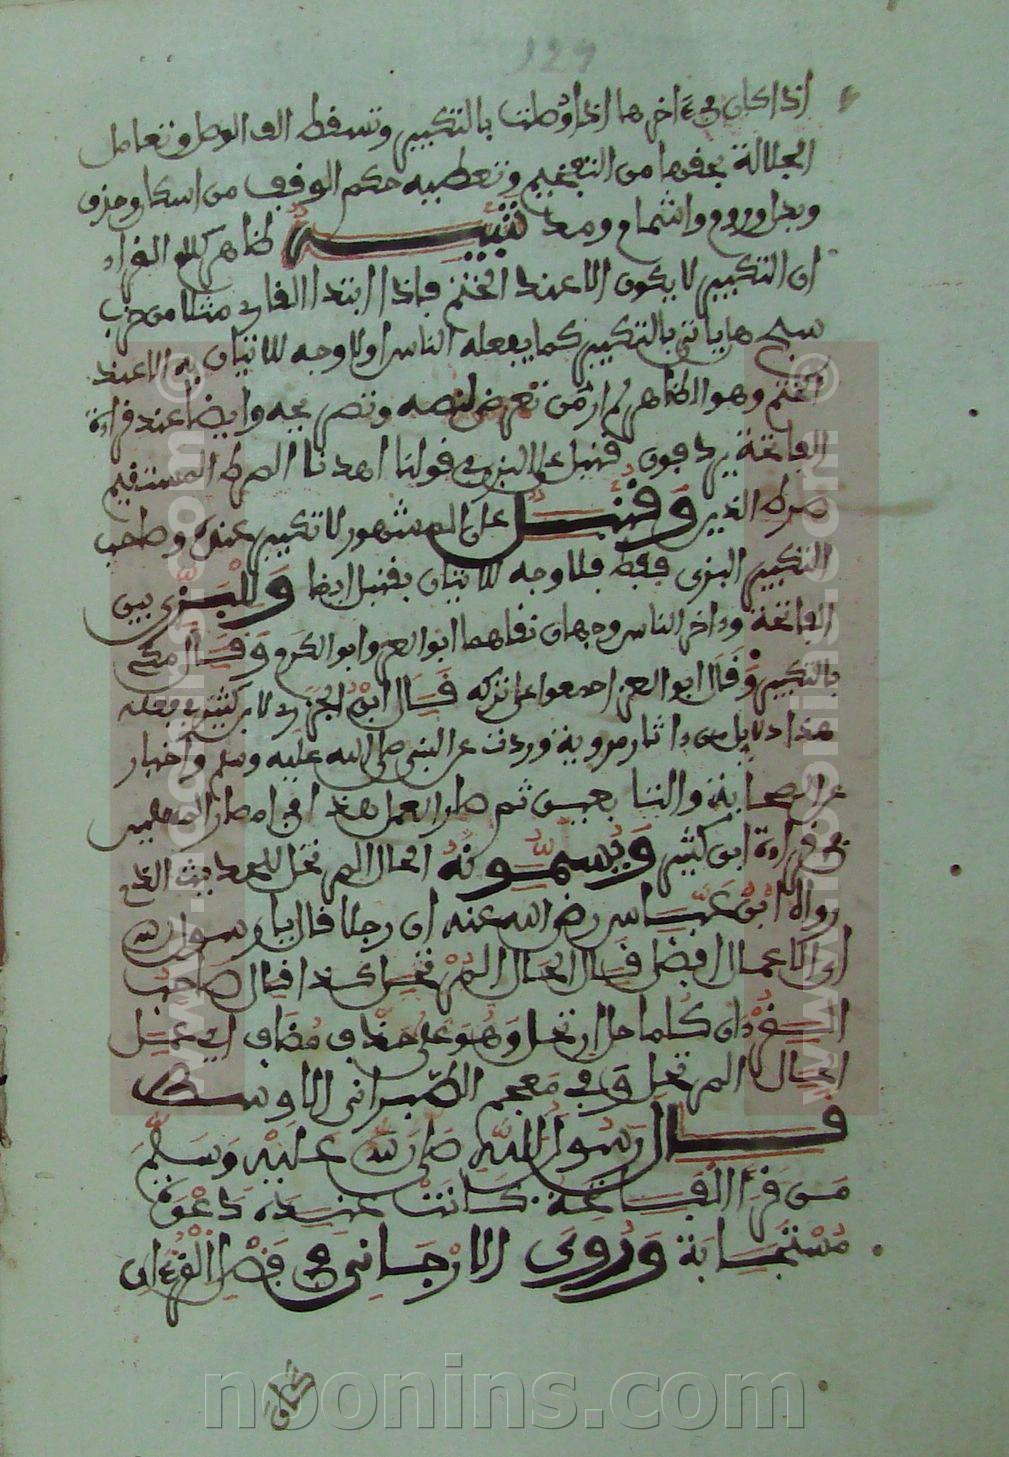 129
اذا كان في ءاخرها اذا وصلت بالتكبير وتسقط الف الوصل وتعامل
الجلالة بحقها من التفخيم وتعطيه حكم الوقف من اسكان وحذف
وبدل وروم واشمام ومد تنبيه ظاهر كلام القراء
ان التكبير لا يكون الا عند الختم فاذا ابتدا القارئ مثلا من حزب
سبح هل ياتي بالتكبير كما يفعله الناس او لا وجه للاتيان به الا عند
الختم وهو الظاهر لم ار من تعرض لنصه وتصريحه وايضا عند قراءة
الفاتحة يردفون قنبل على البزي في قولنا اهدنا الصراط المستقيم
صراط الذين وقنبل على المشهور لا تكبير عنده وصاحب
التكبير البزي فقط فلا وجه للاتيان بقنبل ايضا وللبزي بين
الفاتحة وءاخر الناس وجهان نقلهما ابو العز وابو الكرم وقال
بالتكبير وقال ابو العز اجمعوا على تركه قال ابن الجزري لابن كثير في فعله
هذا دلايل من ءاثار مروية وردت عن النبي صلى الله عليه وسلم واخبار
عن الصحابة والتابعين ثم صار العمل هذا في امصار المسلمين
في قراءة ابن كثير ويسمونه الحال المرتحل للحديث الذي
رواه ابن عباس رضي الله عنه ان رجلا قال يا رسول الله
اي الاعمال افضل قال الحال المرتحل كذا قال صاحب
القرءان كلما حل ارتحل وهو على حذف مضاف اي عمل
الحال المرتحل وفي معجم الطبراني الاوسط
قال رسول الله صلى الله عليه وسلم
من قرا القرءان كانت عنده دعوة
مستجابة وروى الارجاني في فضل القرءان
noonins.com
www.noonins.com ©
www.noonins.com ©